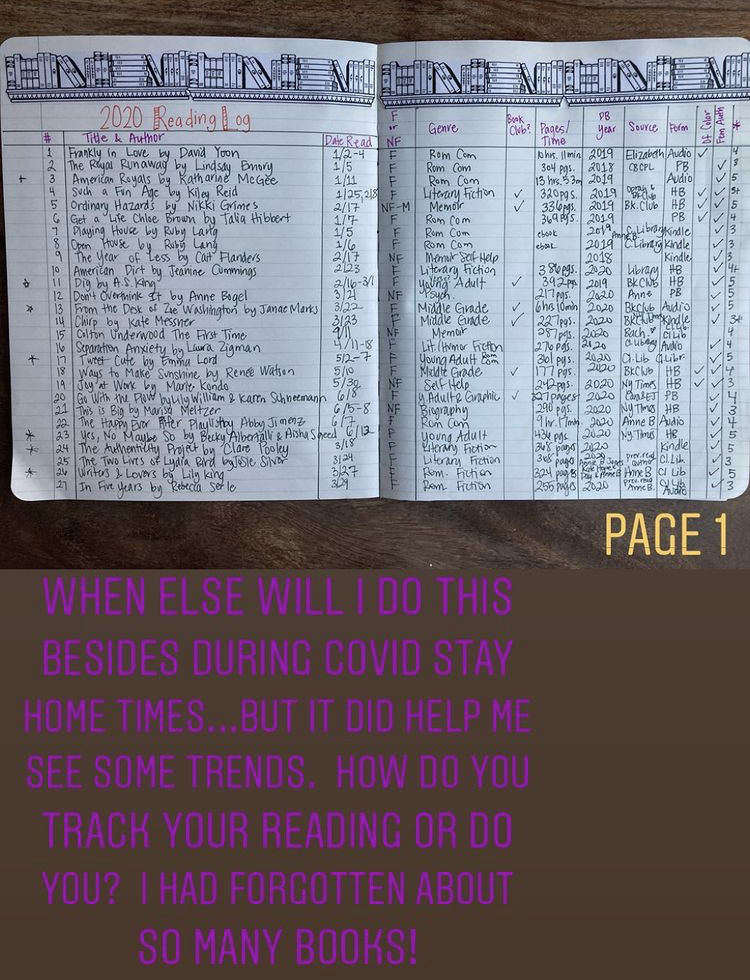 2020 Reading Log
# Title & Author Date Read F or NF Genre Book Club? Pages/Time PB Year Source Form Of Color Fem Auth *
1 Frankly in Love by David Yoon 1/2-4 F Rom Com 10 hrs. 11min 2019 Elizabeth Audio ✓ 4
2 The Royal Runaway by Lindsay Emory 1/5 F Rom Com 304 pgs. 2018 CBCPL PB ✓ 3
3 American Royals by Katharine McGee 1/11 F Rom Com 13 hrs. 53m 2019 Audio ✓ 5
4 Such a Fun Age by Kiley Reid 1/25, F Literary Fiction ✓ 320pgs. 2019 HB ✓ ✓ 5+
5 Ordinary Hazards by Nikki Grimes 2/17 NF-M Memoir ✓ 336pgs. 2019 Bk.Club HB ✓ ✓ 5
6 Get a Life Chloe Brown by Talia Hibbert 1/7 F Rom Com 369pgs. 2019 PB ✓ ✓ 4
7 Playing House by Ruby Lang 1/5 F Rom Com ebook 2019 C.Library Kindle ✓ 3
8 Open House by Ruby Lang 1/6 F Rom Com ebook 2019 C.Library Kindle ✓ 3
9 The Year of Less by Cait Flanders 2/17 NF Memoir Self Help 2018 Kindle ✓ 3
10 American Dirt by Jeanine Cummings 2/23 F Literary Fiction 386pgs. 2020 Library HB ✓ 4+
11 Dig by A.S. King 2/16-3/1 F Young Adult ✓ 392pgs 2019 BkClub HB ✓ 5
12 Don't Overthink It by Anne Bogel 3/21 NF Psych. 217pgs. 2020 Anne PB ✓ 5
13 From the Desk of Zoe Washington by Janae Marks 3/22 F Middle Grade ✓ 6hrs10min 2020 BkClub Audio ✓ ✓ 5
14 Chirp by Kate Messner 3/23 F Middle Grade ✓ 227pgs. 2020 BkClub Kindle ✓ 3+
15 Colton Underwood The First Time NF Memoir 287pgs. 2020 Bach.
16 Separation Anxiety by Laura Zigman 4/11-18 F Lit/Humor Fiction 276 pgs. 2020 Audio ✓ 4
17 Tweet Cute by Emma Lord 5/2-7 F Young Adult Rom Com 361 pgs. 2020 Cl.Lib ✓ 5
18 Ways to Make Sunshine by Renée Watson 5/10 F Middle Grade ✓ 177 pgs. 2020 BkClub HB ✓ ✓ 4
19 Joy at Work by Marie Kondo 5/30 NF Self Help 242pgs. 2020 Ny Times HB ✓ ✓ 3
20 Go With the Flow by Lily William & Karen Schneemann 6/8 F Y Adult & Graphic ✓ 327 pages 2020 PB ✓ 4
21 This is Big by Marisa Meltzer 6/5-8 NF Biography 290 pgs. 2020 Ny Times HB ✓ 3
22 The Happy Ever After Playlist by Abby Jimenz 6/7 F Rom Com 9 hr. 17min 2020 Anne B Audio ✓ 4
23 Yes, No Maybe So by Becky Albertalli & Aisha Saeed 6/12 F Young Adult 436 pgs. 2020 Ny Times HB ✓ 5
24 The Authenticity Project by Clare Pooley 3/18 F Literary Fiction 368 pages 2020 Kindle ✓ 5
25 The Two Lives of Lydia Bird by Josie Silver 3/24 F Literary Fiction 368 pages 2020 Cl Lib ✓ 5
26 Writers & Lovers by Lily King 3/27 F Rom. Fiction 324 pages 2020 Anne B Cl Lib ✓ 5
27 In Five Years by Rebecca Serle 3/29 F Rom. Fiction 255 pages 2020 Anne B. Cl Lib Audio ✓ 3
PAGE 1
WHEN ELSE WILL I DO THIS
BESIDES DURING COVID STAY
HOME TIMES...BUT IT DID HELP ME
SEE SOME TRENDS. HOW DO YOU
TRACK YOUR READING OR DO
YOU? I HAD FORGOTTEN ABOUT
SO MANY BOOKS!